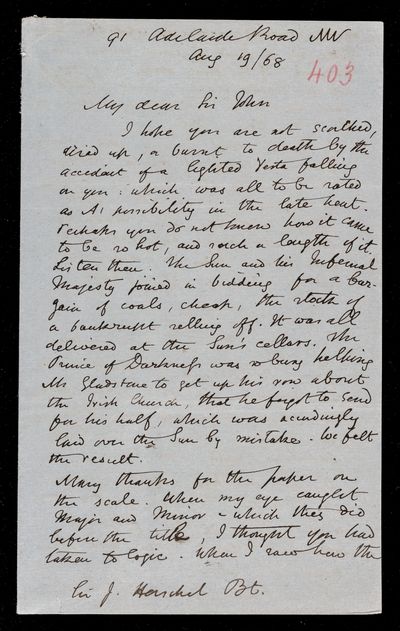 91 Adelaide Road NW
Aug 19/68
403
My dear Sir John
I hope you are not scorched,
dried up, or burnt to death by the
accident of a lighted Vesta falling
on you: which was all to be rated
as A1 possibility in the late heat.
Perhaps you do not know how it came
to be so hot, and such a length of it.
Listen then. The Sun and his Infernal
Majesty joined in bidding for a bar-
gain of coals, cheap, the stock of
a bankrupt selling off. It was all
delivered at the Sun's cellars. The
Prince of Darkness was so busy helping
Mr Gladstone to get up his row about
the Irish Church, that he forgot to send
for his half, which was accordingly
laid over the Sun by mistake. We felt
the result.
Many thanks for the paper on
the scale. When my eye caught
Major and Minor - which they did
before the title, I thought you had
taken to logic. When I saw how the
Sir J. Herschel Bt.